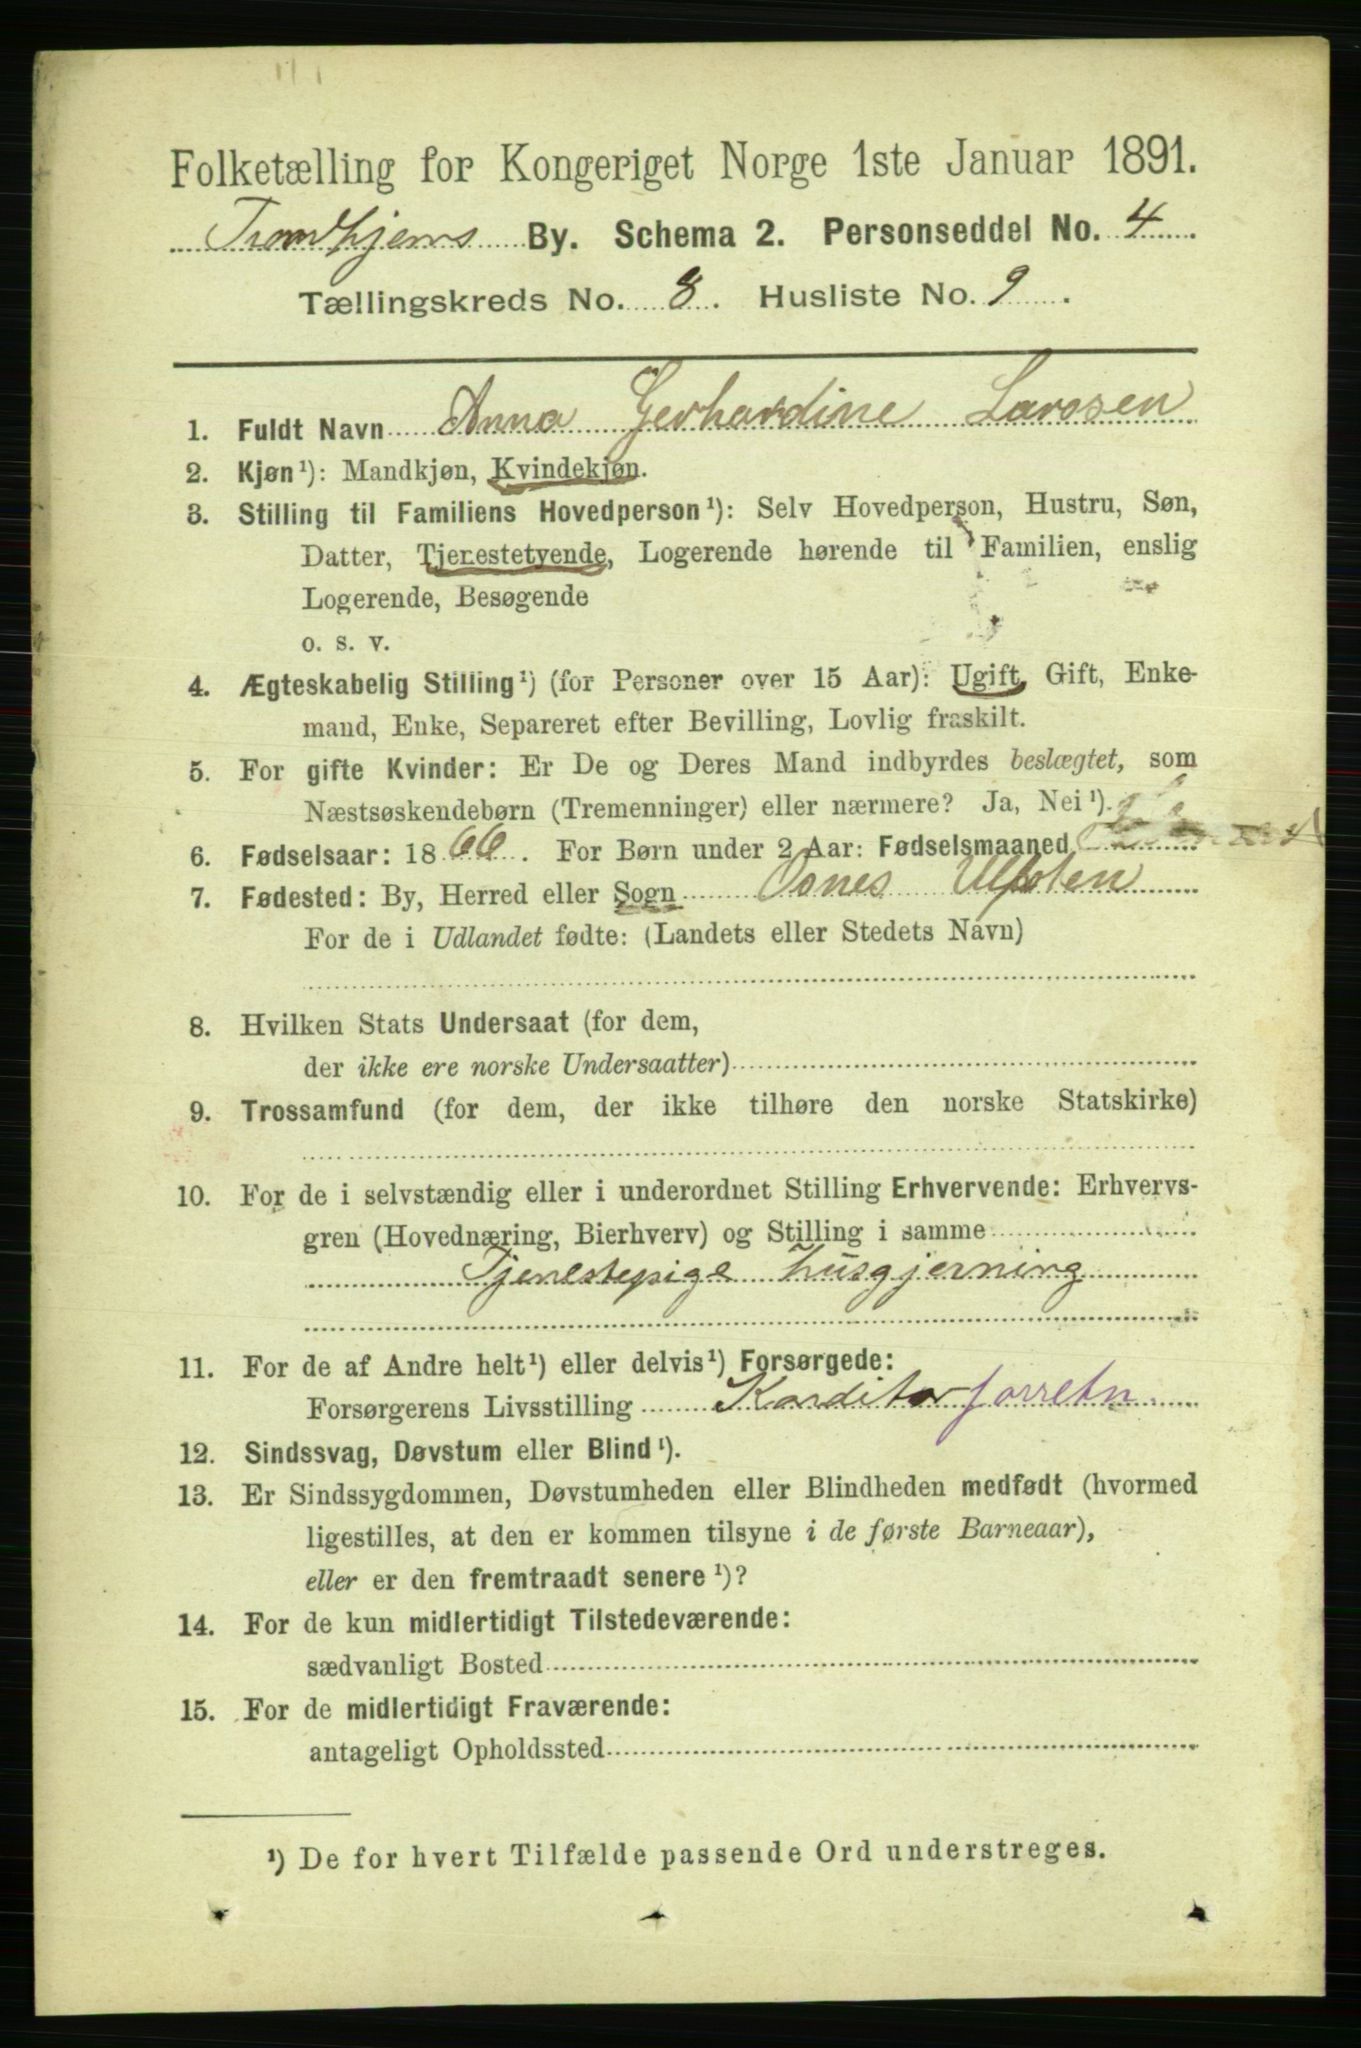 Folketælling for Kongeriget Norge 1ste Januar 1891.
Trondhjems By. Schema 2. Personseddel No. 4
Tællingskreds No. 8. Husliste No. 9.
1. Fuldt Navn Anna Gerhardine Larssen
2. Kjøn¹): Mandkjøn, Kvindekjøn.
3. Stilling til Familiens Hovedperson¹): Selv Hovedperson, Hustru, Søn,
Datter, Tjenestetyende, Logerende hørende til Familien, enslig
Logerende, Besøgende
o. s. v.
4. Ægteskabelig Stilling¹) (for Personer over 15 Aar): Ugift, Gift, Enke-
mand, Enke, Separeret efter Bevilling, Lovlig fraskilt.
5. For gifte Kvinder: Er De og Deres Mand indbyrdes beslægtet, som
Næstsøskendebørn (Tremenninger) eller nærmere? Ja, Nei¹).
6. Fødselsaar: 1866. For Børn under 2 Aar: Fødselsmaaned
7. Fødested: By, Herred eller Sogn Osnes Ulfsten
For de i Udlandet fødte: (Landets eller Stedets Navn)
8. Hvilken Stats Undersaat (for dem,
der ikke ere norske Undersaatter)
9. Trossamfund (for dem, der ikke tilhøre den norske Statskirke)
10. For de i selvstændig eller i underordnet Stilling Erhvervende: Erhvervs-
gren (Hovednæring, Bierhverv) og Stilling i samme
Tjenestepige husgjerning
11. For de af Andre helt¹) eller delvis¹) Forsørgede:
Forsørgerens Livsstilling Konditorforretn.
12. Sindssvag, Døvstum eller Blind¹).
13. Er Sindssygdommen, Døvstumheden eller Blindheden medfødt (hvormed
ligestilles, at den er kommen tilsyne i de første Barneaar),
eller er den fremtraadt senere¹)?
14. For de kun midlertidigt Tilstedeværende:
sædvanligt Bosted
15. For de midlertidigt Fraværende:
antageligt Opholdssted
¹) De for hvert Tilfælde passende Ord understreges.